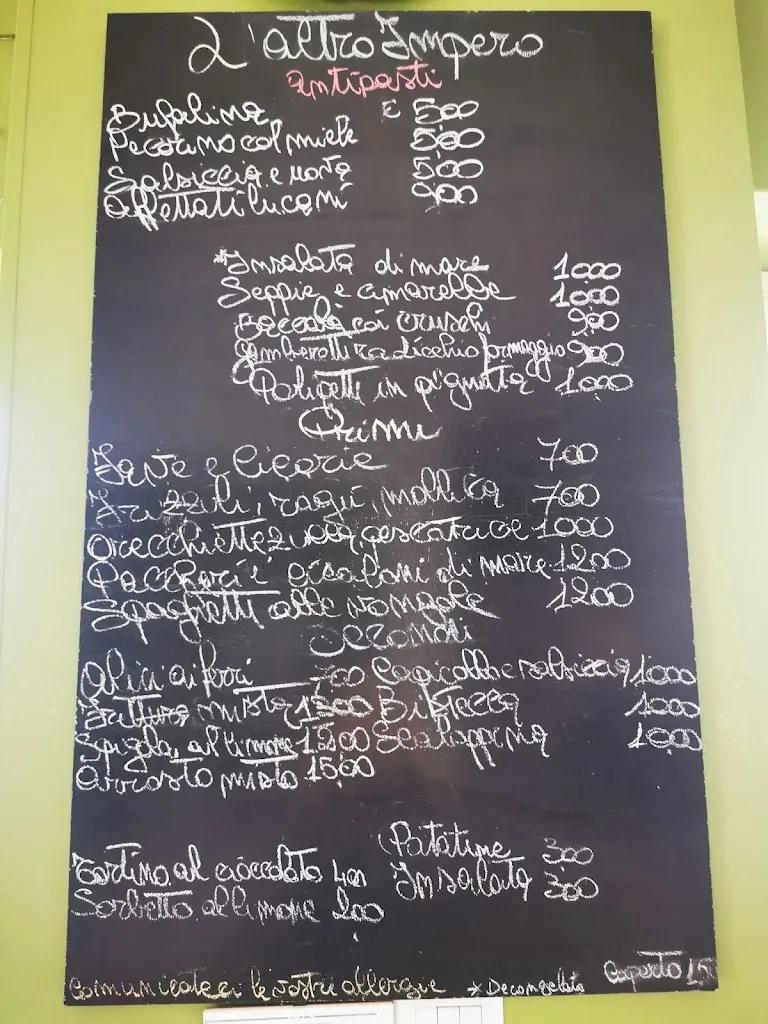 L'altro Impero
antipasti
Bufalina € 500
Pecorino col miele 500
Salsiccia e 500
Affettati lucani 900
*Insalata di mare 1000
Seppie e 1000
Baccalà coi cruschi 900
Gamberetti radicchio formaggio 900
Polipetti in pignata 1000
Primi
Fave e cicorie 700
Frizzuli, ragù, mollica 700
Orecchiette zucca, pescatrice 1000
Paccheri i di mare 1200
Spaghetti alle vongole 1200
Secondi
Alici ai ferri 700 salsiccia 1000
Frittura mista 1300 Bistecca 1000
Spigola al limone 1200 Scaloppina 1000
Arrosto misto 1500
Patatine 300
Tortino al cioccolato 400 Insalata 300
Sorbetto al limone 200
Comunicateci le vostre allergie * Decongelato Coperto